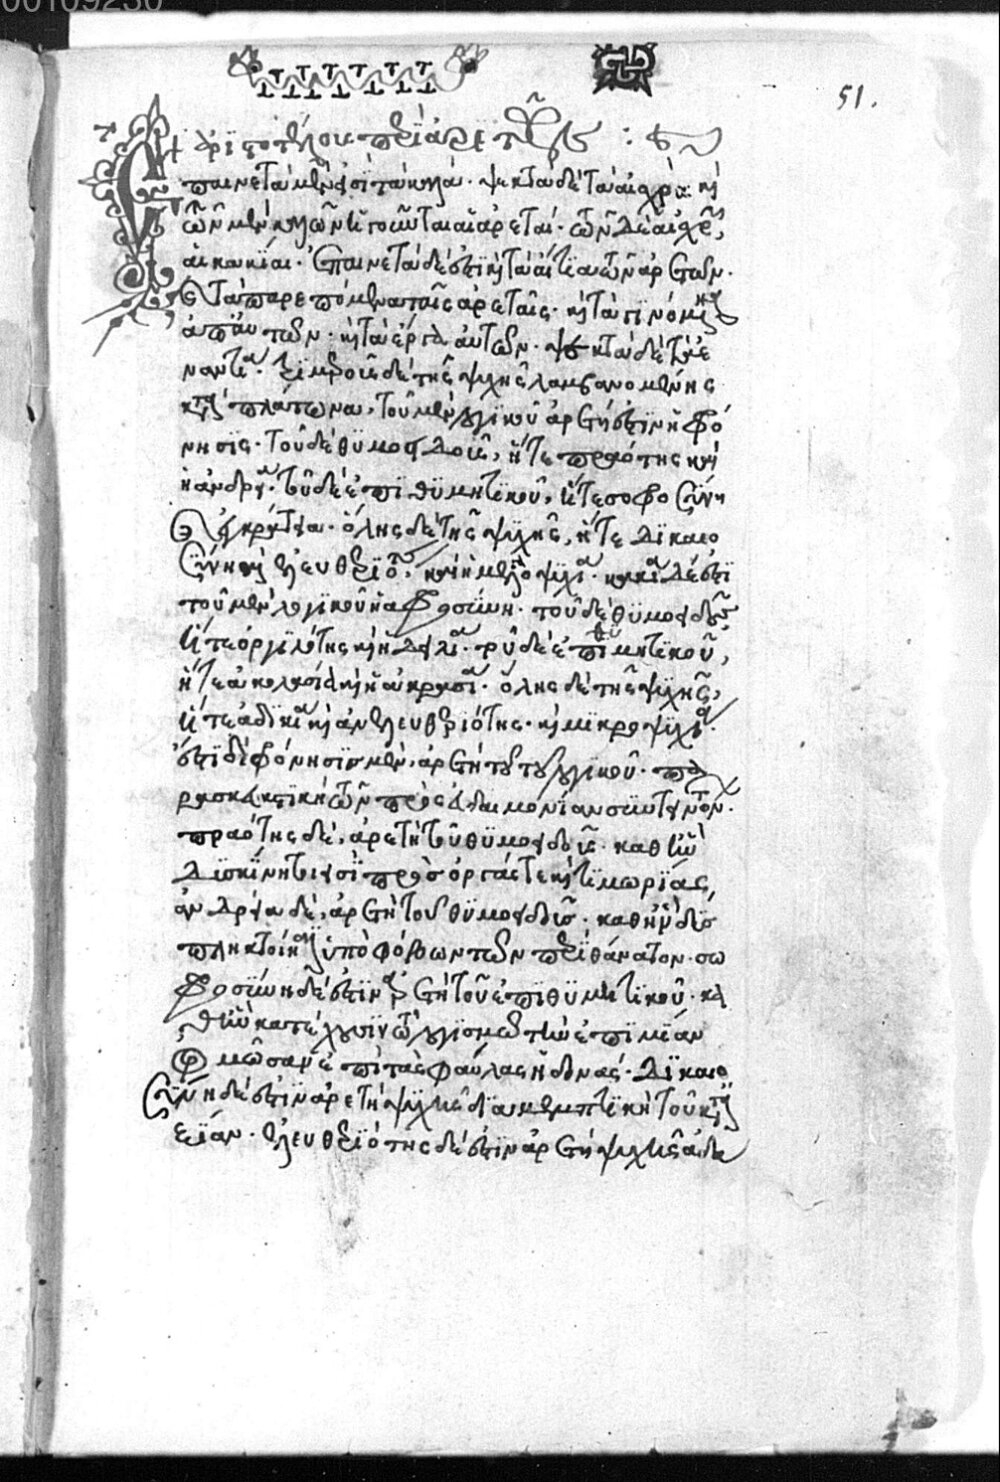 00109230
51.
ἀριστοτέλους περὶ ἀρετῶν
Ἐπαινετὰ μέν εἰσι τὰ καλά· ψεκτὰ δὲ τὰ αἰσχρά· καὶ
τῶν μὲν καλῶν ἡγοῦνται αἱ ἀρεταί· τῶν δὲ αἰσχρῶν,
αἱ κακίαι· ἐπαινετὰ δέ ἐστι καὶ τὰ αἴτια τῶν ἀρετῶν·
καὶ τὰ παρεπόμενα ταῖς ἀρεταῖς· καὶ τὰ γινόμενα
ἀπ' αὐτῶν· καὶ τὰ ἔργα αὐτῶν· ψεκτὰ δὲ τὰ ἐ
ναντία· τριμεροῦς δὲ τῆς ψυχῆς λαμβανομένης
κατὰ πλάτωνα, τοῦ μὲν λογικοῦ ἀρετή ἐστιν ἡ φρό
νησις· τοῦ δὲ θυμοειδοῦς, ἥ τε πραότης καὶ
ἡ ἀνδρεία· τοῦ δὲ ἐπιθυμητικοῦ, ἥ τε σωφροσύνη
καὶ ἐγκράτεια· ὅλης δὲ τῆς ψυχῆς, ἥ τε δικαιο
σύνη καὶ ἐλευθεριότης, καὶ ἡ μεγαλοψυχία· κακία δέ ἐστι
τοῦ μὲν λογικοῦ ἡ ἀφροσύνη· τοῦ δὲ θυμοειδοῦς
ἥ τε ὀργιλότης καὶ ἡ δειλία· τοῦ δὲ ἐπιθυμητικοῦ,
ἥ τε ἀκολασία καὶ ἡ ἀκρασία· ὅλης δὲ τῆς ψυχῆς,
ἥ τε ἀδικία καὶ ἀνελευθεριότης· καὶ μικροψυχία·
ἔστι δὲ φρόνησις μὲν, ἀρετὴ τοῦ λογικοῦ· πα
ρασκευαστικὴ τῶν πρὸς εὐδαιμονίαν συντεινόντων·
πραότης δὲ, ἀρετὴ τοῦ θυμοειδοῦς· καθ' ἣν
δυσκίνητοι εἰσὶ πρὸς ὀργάς τε καὶ τιμωρίας,
ἀνδρεία δὲ, ἀρετὴ τοῦ θυμοειδοῦς· καθ' ἣν δυσ
πληκτοί εἰσιν ὑπὸ φόβων τῶν περὶ θάνατον· σω
φροσύνη δέ ἐστιν ἀρετὴ τοῦ ἐπιθυμητικοῦ· κα
θ' ἣν
ὁρμῶσαν ἐπὶ τὰς φαύλας ἡδονάς· δικαιο
σύνη δέ ἐστιν ἀρετὴ ψυχῆς διανεμητικὴ τοῦ κατ'
ἀξίαν· ἐλευθεριότης δέ ἐστιν ἀρετὴ ψυχῆς